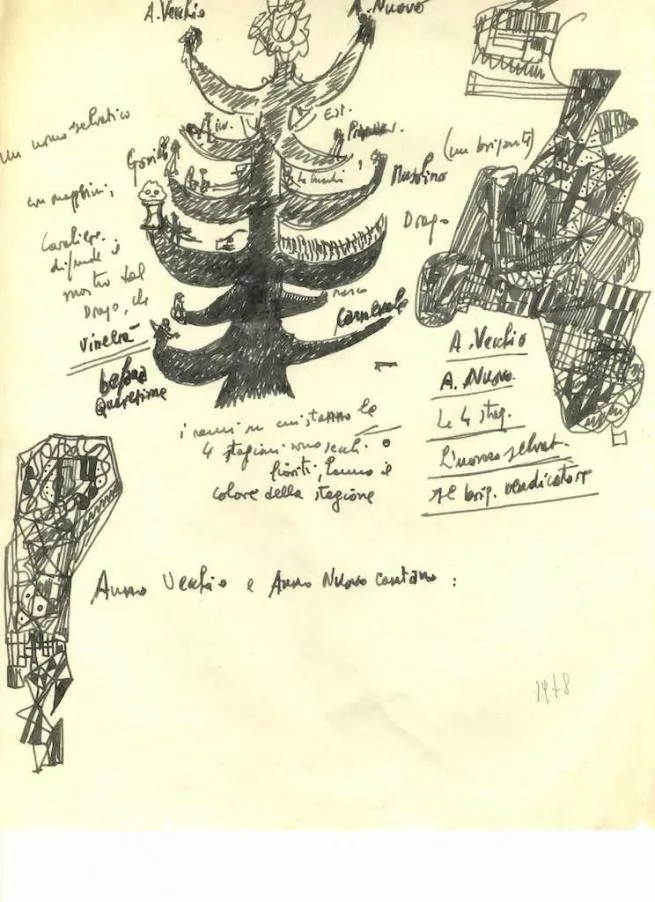 A. Vecchio
A. Nuovo
un uomo selvatico
Est.
(un brigante)
Gorilla
Musolino
Drago
Cavaliere.
difende il
mostro dal
Drago, che
vincerà
Carnevale
befana
Quaresima
A. Vecchio
A. Nuovo.
Le 4 stag.
L'uomo selvat.
Il brig. vendicatore
i rami su cui stanno le
4 stagioni sono secchi o
fioriti, hanno il
colore della stagione
Anno Vecchio e Anno Nuovo cantano :
1978